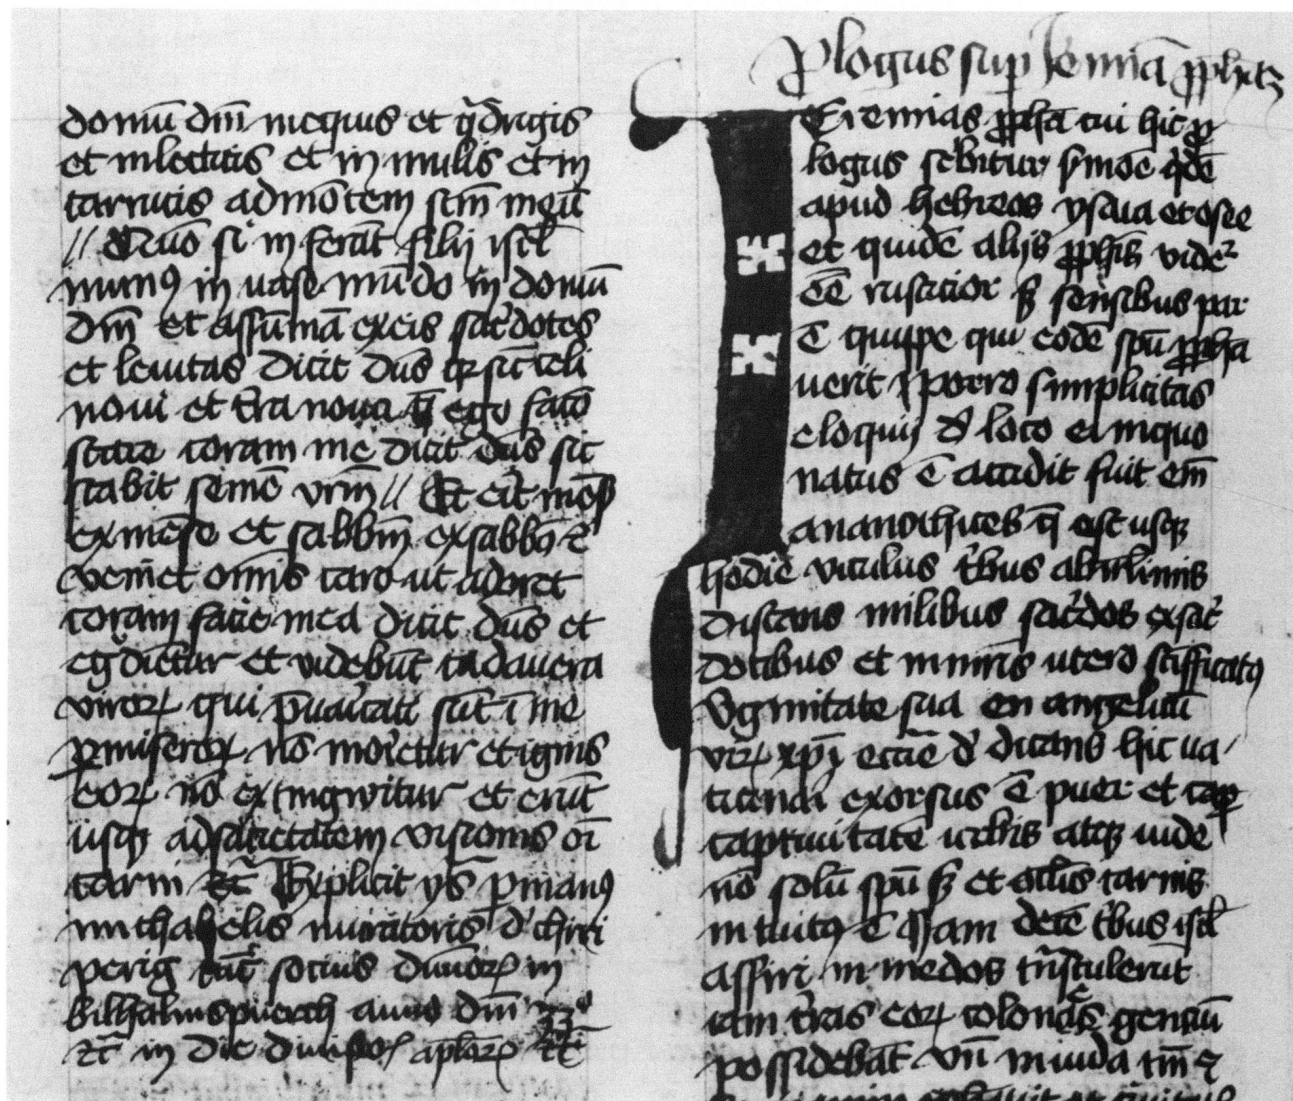 domū dm̄ in equis et q̄drigis
et in lecticis et in mulis et in
carrucis ad mōtem sc̄m meū
// Quō si in ferāt filij isrl̄
mun⁹ in uase mūdo in domū
dm̄ et assumā ex eis sac̄dotes
et leuitas dicit dūs q̄ sic celi
noui et t̄ra noua q̄ ego facio
stare coram me dicit dūs sic
stabit semē vr̄m // Et erit mēs
ex mēse et sabbm̄ ex sabbō ⁊
veniet om̄is caro ut adoret
coram facie mea dicit dūs et
eg̃diētur et videbūt cadauera
viroꝝ qui p̄uaricati sūt ī me
ꝑmiseroꝝ nō moriētur et ignis
eoꝝ nō extingwitur et erūt
usqꝫ ad sacietatem visionis oī
carni Etc̄ Explicit ys̄ ꝑ manꝰ
michahelis muratoris d'
perig tūc socius diuinoꝝ in
anno dm̄
etc̄ in die diuisioꝝ apl̄oꝝ etc̄
Plogus suꝑ Jeremiā ꝓphetā
Jeremias ꝓpha cui hic ꝓ
logus scͥbitur ẜmōe q̄dē
apud hebreos ysaia et osee
et quidē alijs ꝓphīs videt᷑
eē rusticior sꝫ sensibus par
ē quippe qui eodē spū ꝓpha
uerit Porro simplicitas
eloquij d' loco ei in quo
natus ē accidit fuit em̄
anathotites q̄ est usqꝫ
hodie viculus tͥbus ab ihr̄limis
distans milibus sac̄dos ex sac̄
dotibus et in mr̄is utero sc̄ifficatꝰ
v̄ginitate sua en angelicū
viꝝ xpī eccīe d' dicans hic ua
ticinari exorsus ē puer et cap
captiuitatē urbis atqꝫ iude
nō solū spū sꝫ et oc̄lis carnis
intuitꝰ ē Jam decē tͥbus isrl̄
assirij in medos tn̄stulerūt
iam t̄ras eoꝝ colonias genciū
possidebāt vn̄ in iuda tm̄ ⁊